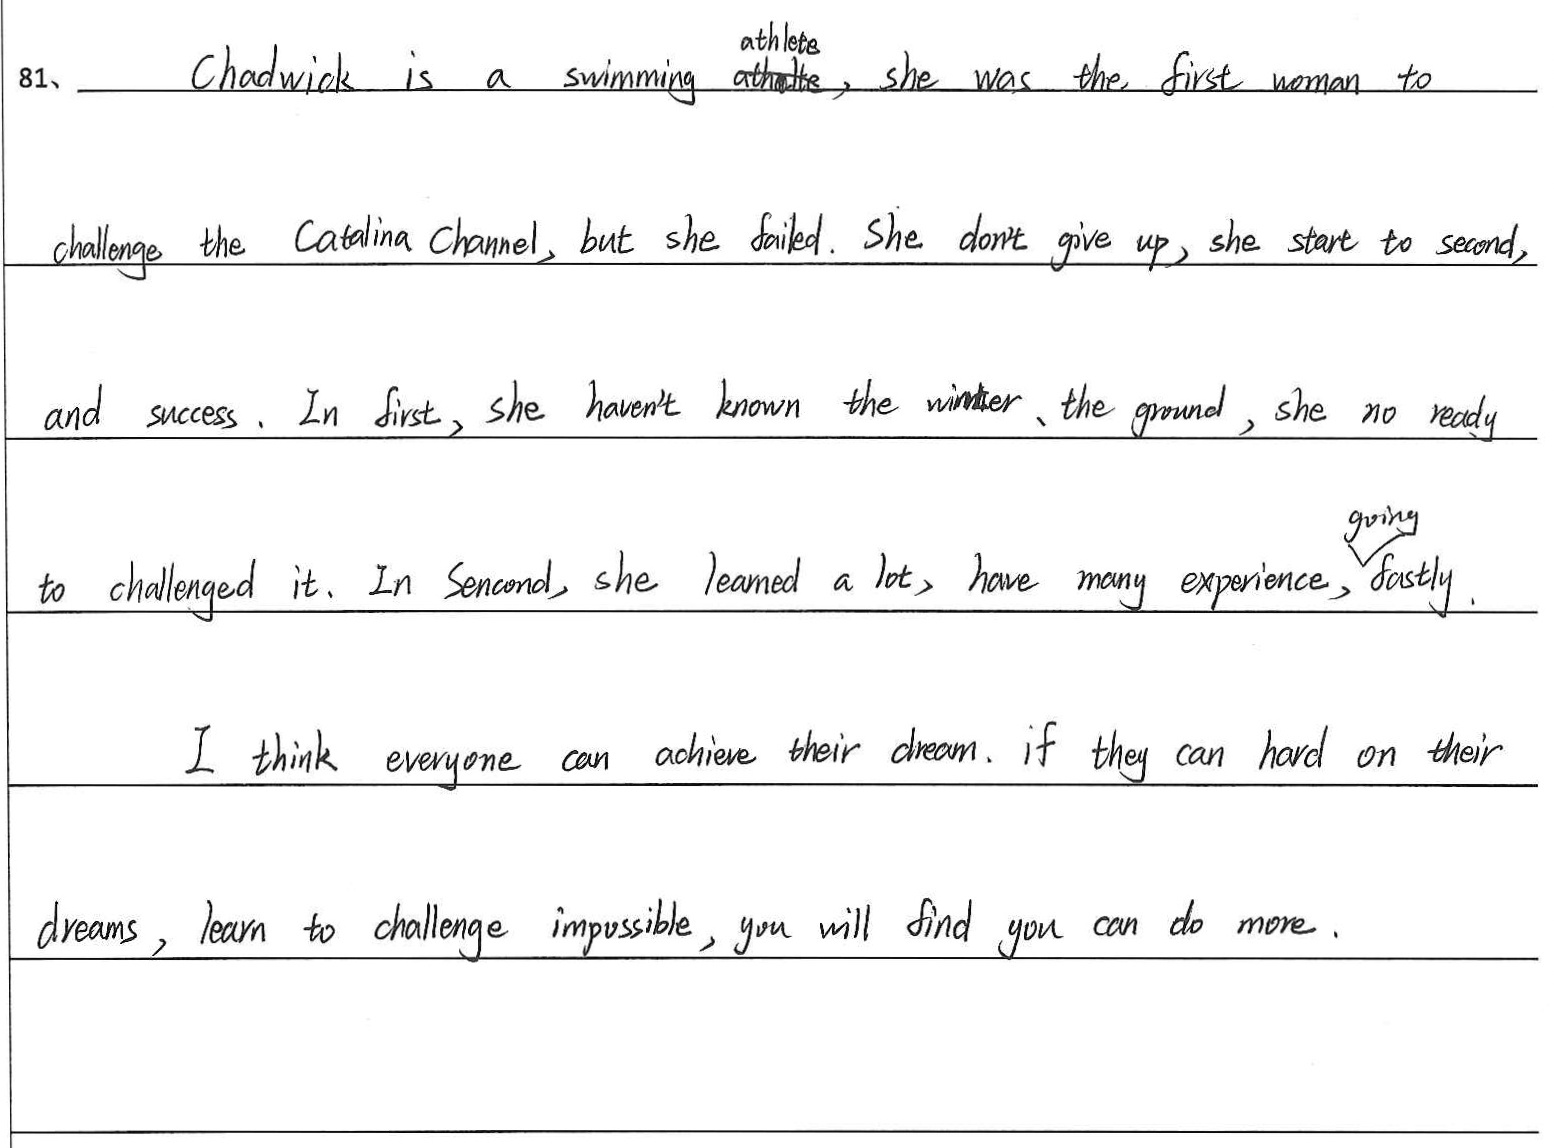 81、 Chadwick is a swimming athlete, she was the first woman to
challenge the Catalina Channel, but she failed. She don't give up, she start to second,
and success. In first, she haven't known the winter、the ground, she no ready
to challenged it. In Sencond, she learned a lot, have many experience, going fastly.
I think everyone can achieve their dream. if they can hard on their
dreams, learn to challenge impossible, you will find you can do more.